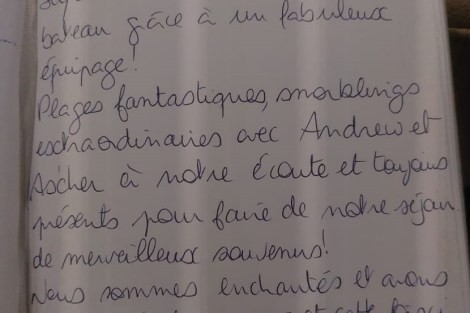 bateau grâce à un fabuleux
équipage!
Plages fantastiques, snorklings
extraordinaires avec Andrew et
Ascher à notre écoute et toujours
présents pour faire de notre séjour
de merveilleux souvenirs!
Nous sommes enchantés et avons